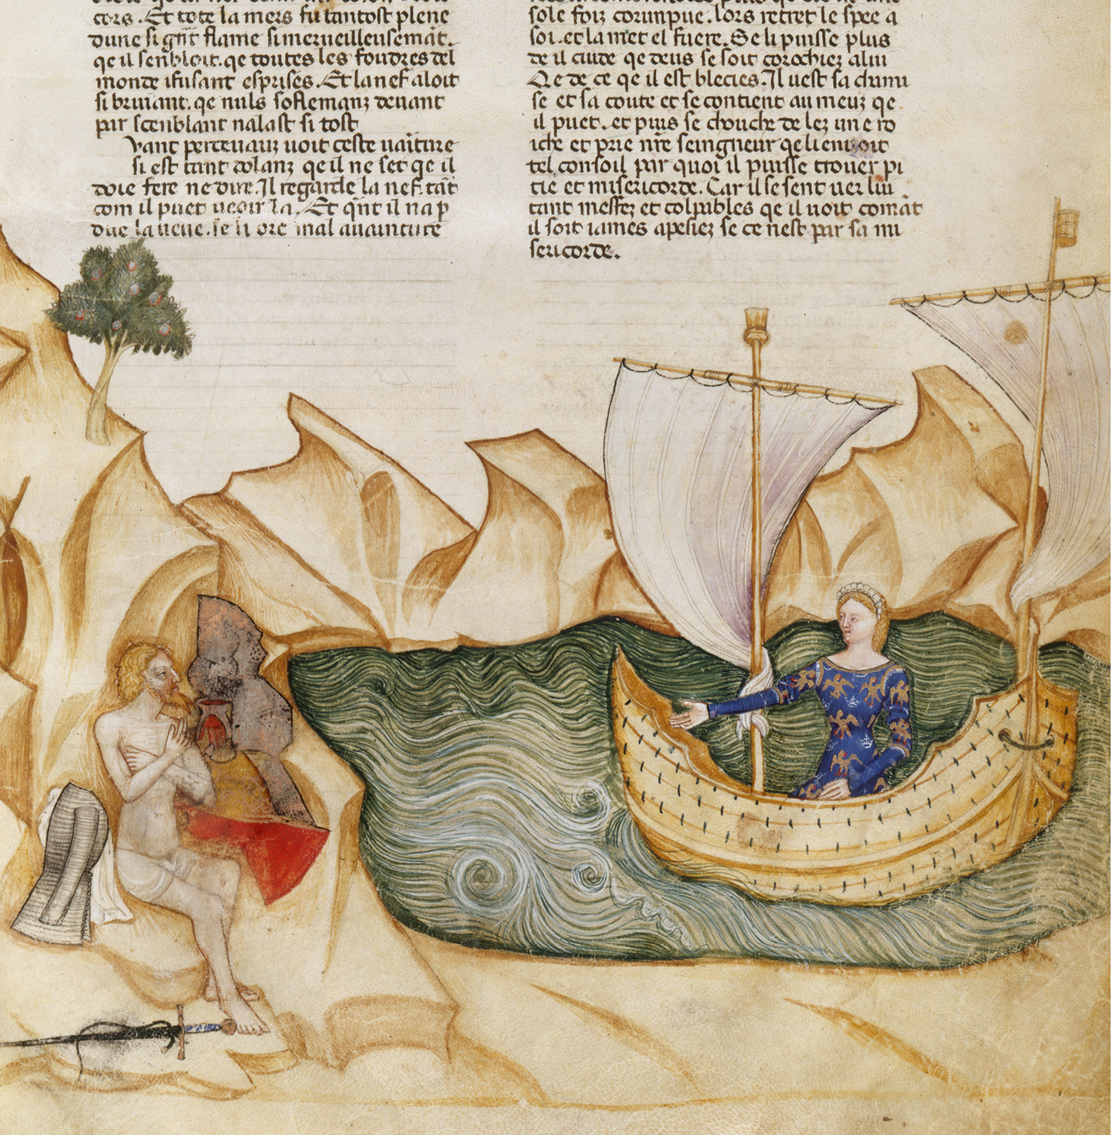 cors. Et tote la mers fu tantost plene
dune si gñt flame si merueilleusemāt.
qe il senbloit. qe toutes les foudres del
monde ifusant esprises. Et la nef aloit
si bruiant. qe nuls soflemanz deuant
par scenblant nalast si tost
Vant perceuaux uoit ceste uaiture
si est tant dolanz qe il ne set qe il
doie fere ne dire. Il regarde la nef. tāt
com il puet ueoir la. Et qñt il na p
due la ueue. se li ore mal auainture
sole foiz corunpue. lors retret le spee a
soi. et la met el fuere. Se li puisse plus
de il cuide qe deus se soit corochiez a lui
Qe de ce qe il est blecies. Il uest sa chimi
se et sa coute et se contient au meuz qe
il puet. et puis se chouche de lez une ro
iche et prie nr̄e seingneur qe li enuoit
tel consoil par quoi il puisse trouer pi
tie et misericorde. Car il se sent uer lui
tant messez et colpables qe il uoit comāt
il soit iames apesiez se ce nest par sa mi
sericorde.